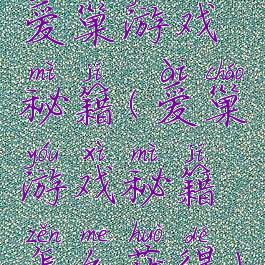 爱巢游戏
mì jí ài cháo
秘籍(爱巢
yóu xì mì jí
游戏秘籍
zěn me huò dé
怎么获得)